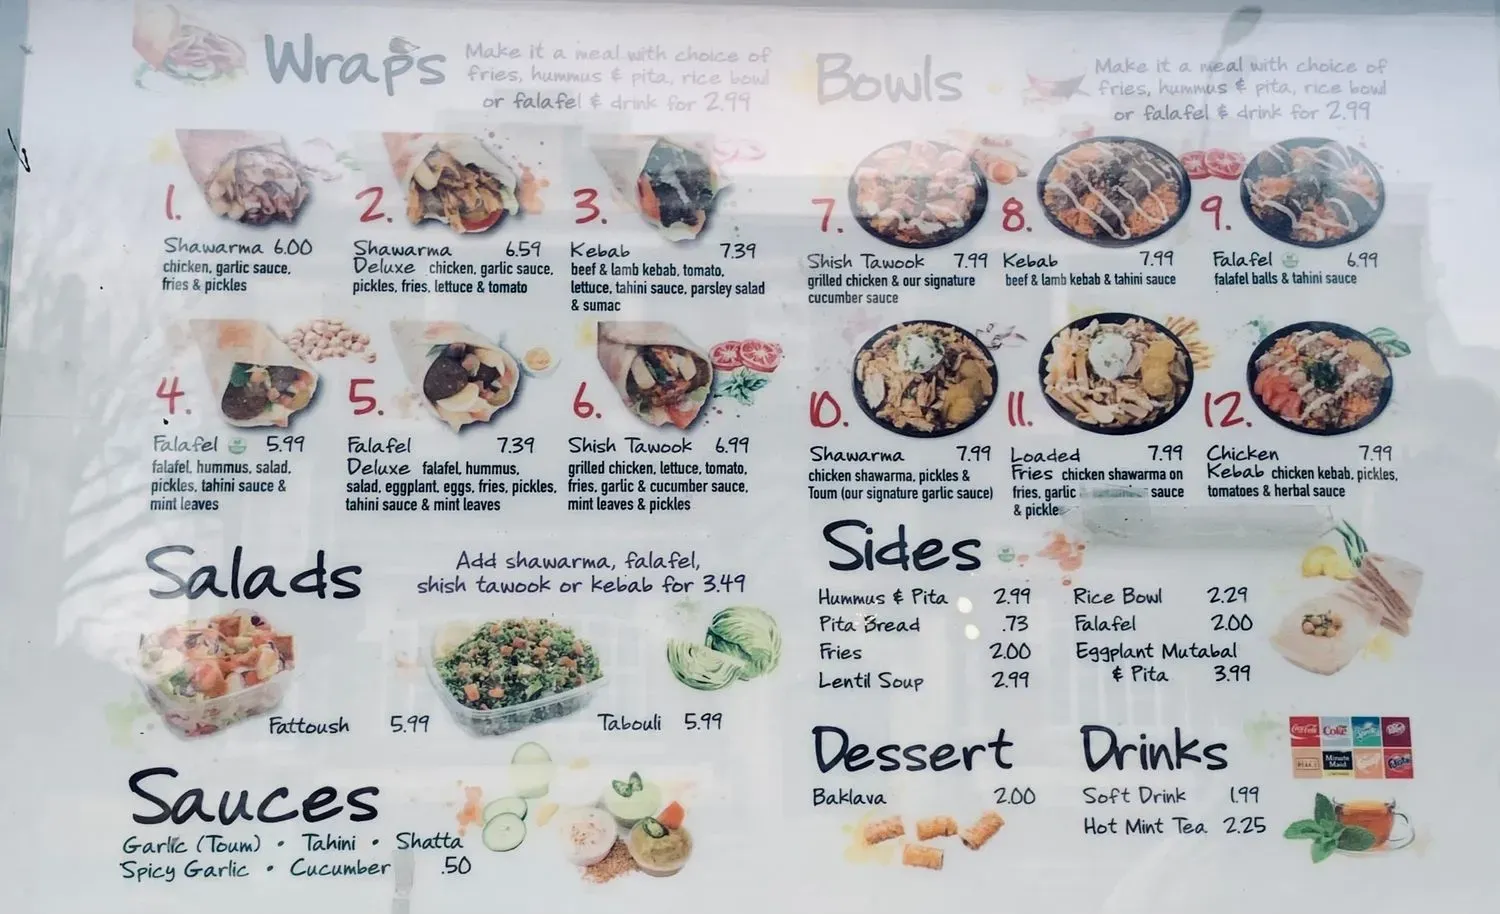 Wraps
Make it a meal with choice of
fries, hummus & pita, rice bowl
or falafel & drink for 2.99
1.
Shawarma 6.00
chicken, garlic sauce,
fries & pickles
2.
Shawarma 6.59
Deluxe chicken, garlic sauce,
pickles, fries, lettuce & tomato
3.
Kebab 7.39
beef & lamb kebab, tomato,
lettuce, tahini sauce, parsley salad
& sumac
4.
Falafel 5.99
falafel, hummus, salad,
pickles, tahini sauce &
mint leaves
5.
Falafel 7.39
Deluxe falafel, hummus,
salad, eggplant, eggs, fries, pickles,
tahini sauce & mint leaves
6.
Shish Tawook 6.99
grilled chicken, lettuce, tomato,
fries, garlic & cucumber sauce,
mint leaves & pickles
Salads
Add shawarma, falafel,
shish tawook or kebab for 3.49
Fattoush 5.99
Tabouli 5.99
Sauces
Garlic (Toum) • Tahini • Shatta
Spicy Garlic • Cucumber .50
Bowls
Make it a meal with choice of
fries, hummus & pita, rice bowl
or falafel & drink for 2.99
7.
Shish Tawook 7.99
grilled chicken & our signature
cucumber sauce
8.
Kebab 7.99
beef & lamb kebab & tahini sauce
9.
Falafel 6.99
falafel balls & tahini sauce
10.
Shawarma 7.99
chicken shawarma, pickles &
Toum (our signature garlic sauce)
11.
Loaded 7.99
Fries chicken shawarma on
fries, garlic sauce
& pickle
12.
Chicken 7.99
Kebab chicken kebab, pickles,
tomatoes & herbal sauce
Sides
Hummus & Pita 2.99
Pita Bread .73
Fries 2.00
Lentil Soup 2.99
Rice Bowl 2.29
Falafel 2.00
Eggplant Mutabal
& Pita 3.99
Dessert
Baklava 2.00
Drinks
Soft Drink 1.99
Hot Mint Tea 2.25
Coca-Cola
Coke
Sprite
Minute
Maid
Fanta